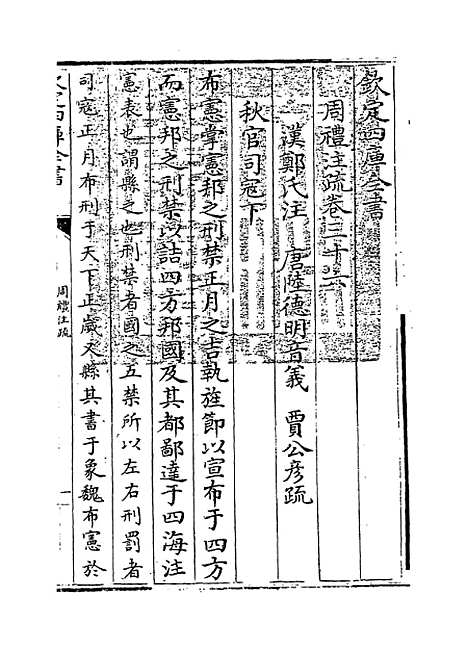 欽定四庫全書
周禮注疏卷三十六
漢鄭氏注　唐陸德明音義　賈公彦疏
秋官司寇下
布憲掌憲邦之刑禁正月之吉執旌節以宣布于四方
而憲邦之刑禁以詰四方邦國及其都鄙達于四海注
憲表也謂縣之也刑禁者國之五禁所以左右刑罰者
司寇正月布刑于天下正歲又縣其書于象魏布憲於
欽定四庫全書
周禮注疏
一